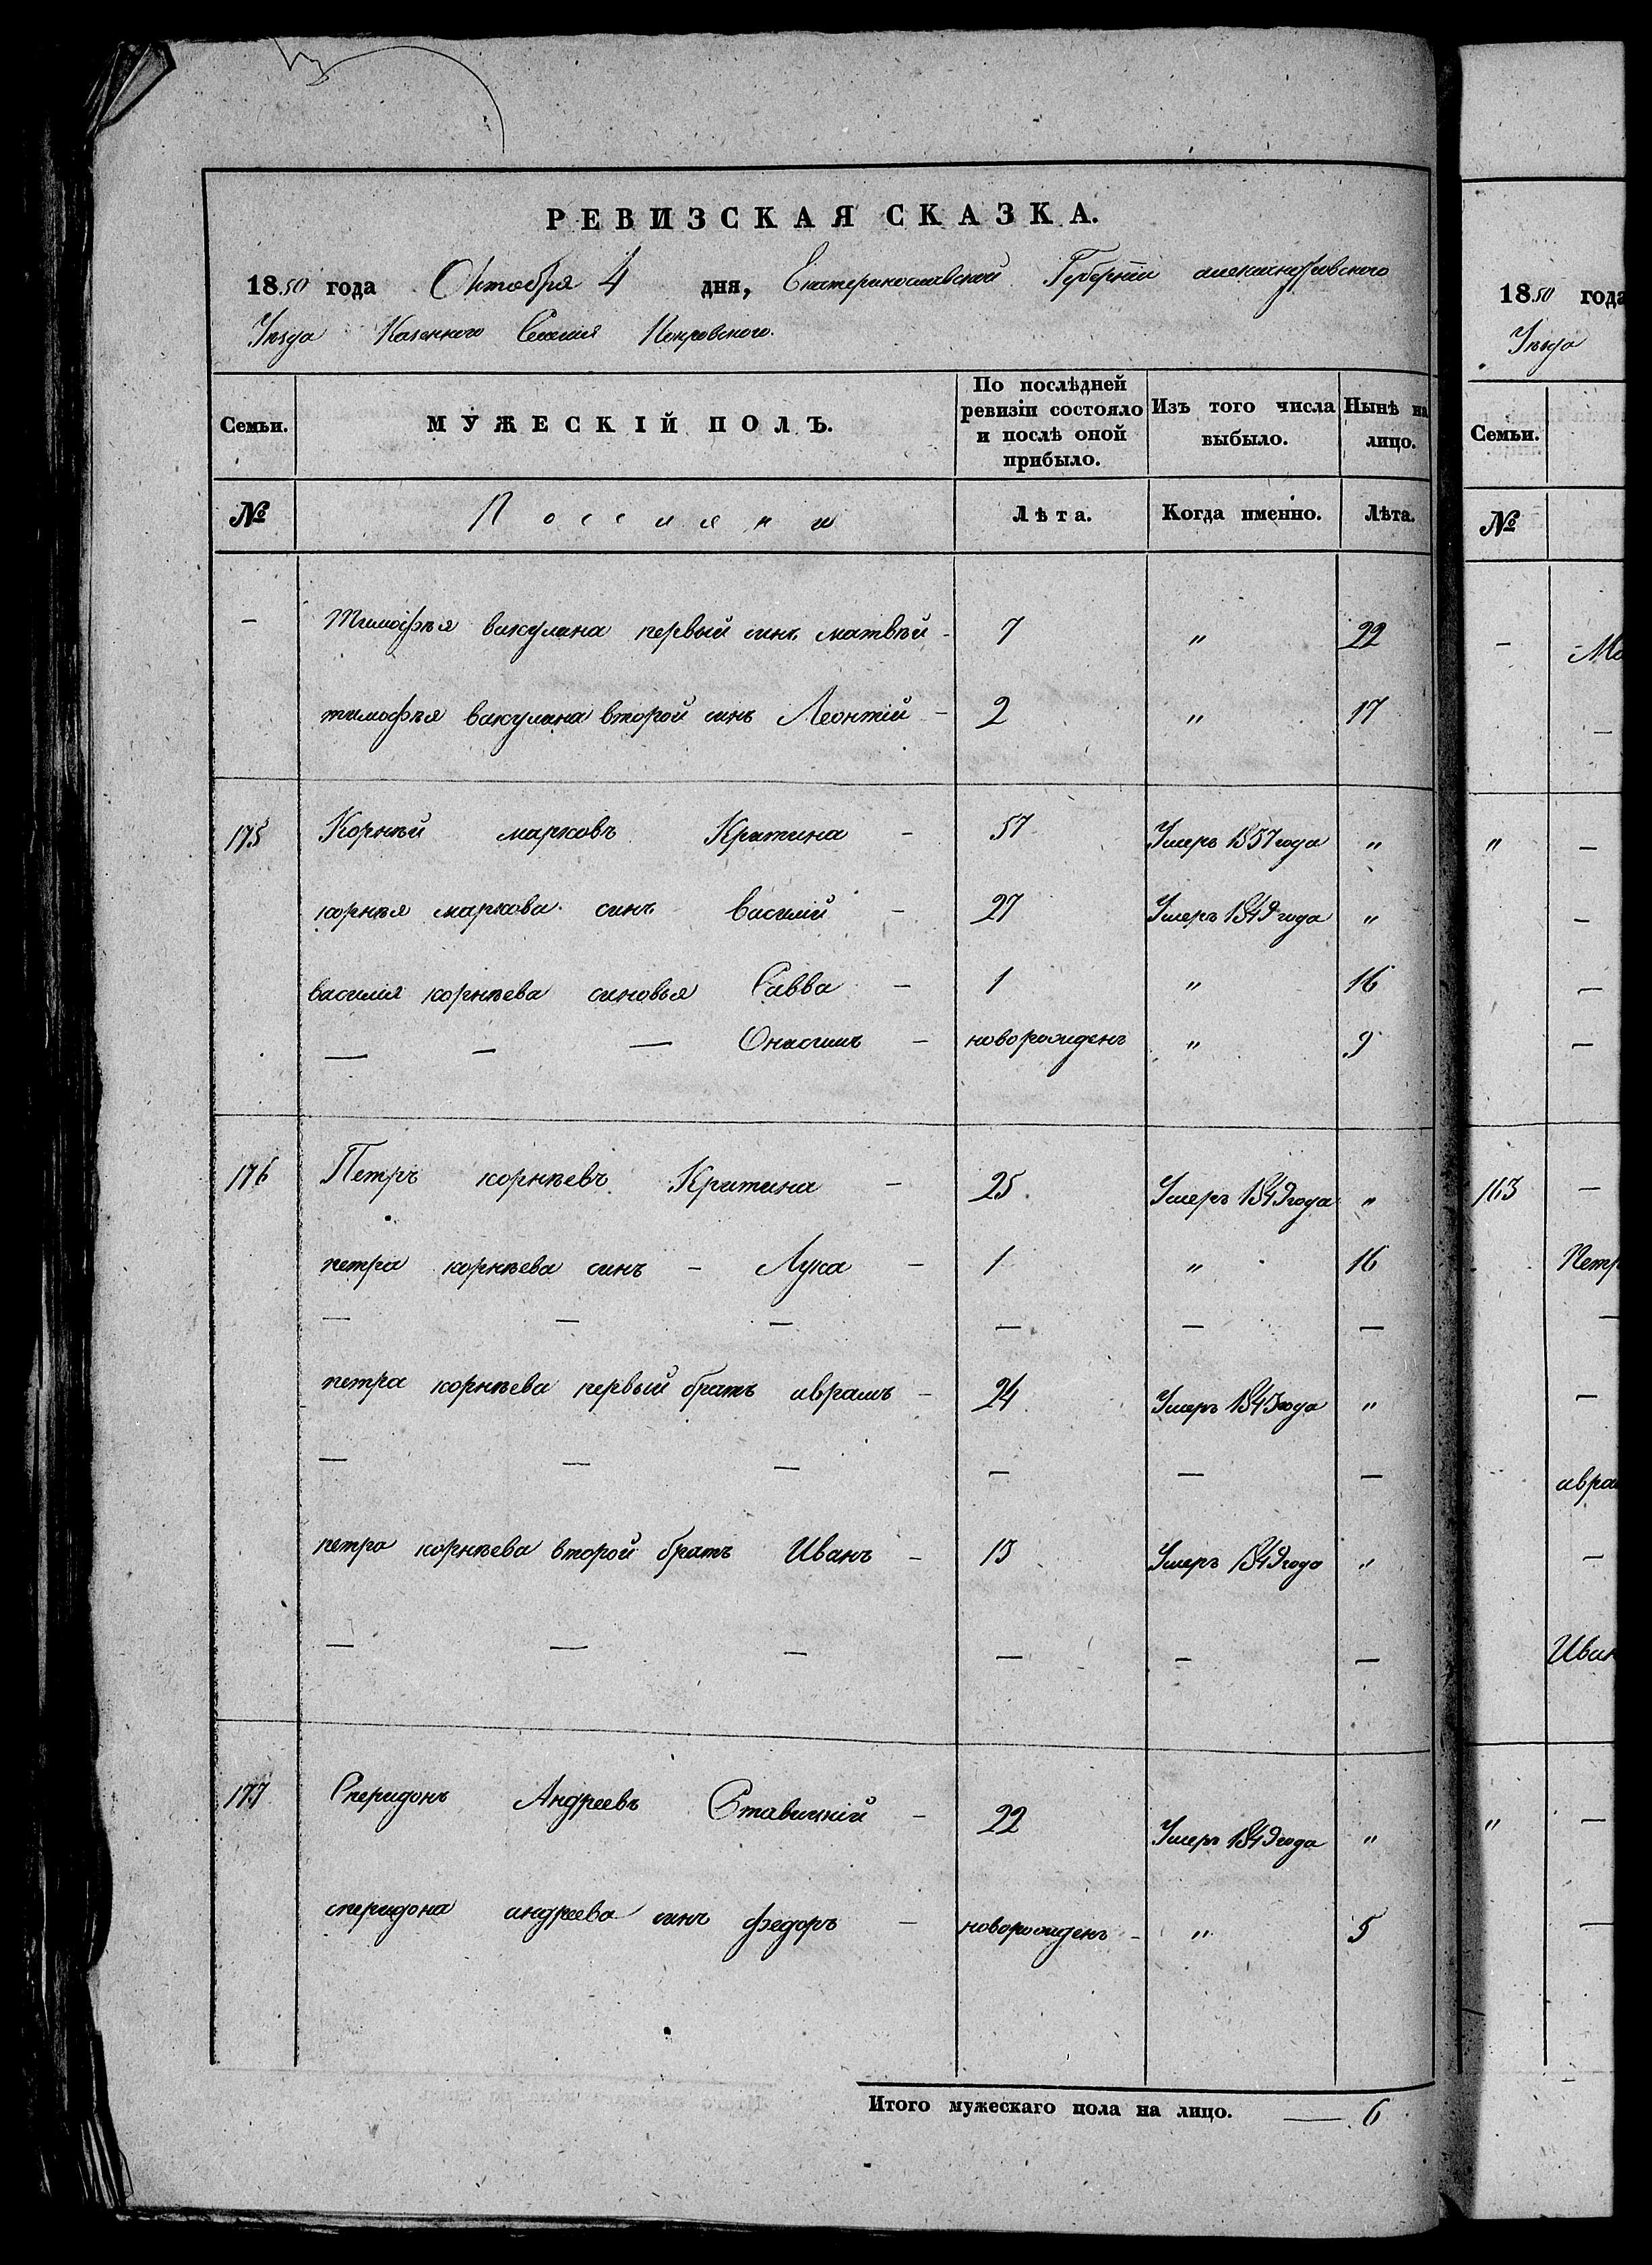 РЕВИЗСКАЯ СКАЗКА.
1850 года Октября 4 дня, Екатеринославской Губернiи александровского
Уезда Казенного Селенiя Покровского.
Семьи. МУЖЕСКІЙ ПОЛЪ. По послѣдней ревизіи состояло и послѣ оной прибыло. Изъ того числа выбыло. Нынѣ на лицо.
№ Поселяни Лѣта. Когда именно. Лѣта.
— Тимофѣя вакулина первый синъ матвѣй - 7 " 22
тимофѣя вакулина второй синъ Леонтiй - 2 " 17
175 Корнѣй марковъ Критина - 57 Умеръ 1837 года "
корнѣя маркова синъ василiй - 27 Умеръ 1849 года "
василiя корнѣева синовья Савва - 1 " 16
— — — Онисимъ - новорожденъ " 9
176 Петръ корнѣевъ Критина - 25 Умеръ 1849 года "
петра корнѣева синъ - Лука - 1 " 16
— — — — — —
петра корнѣева первый братъ аврамъ - 24 Умеръ 1843 года "
— — — — — —
петра корнѣева второй братъ Иванъ - 13 Умеръ 1849 года "
— — — — — —
177 Спиридонъ Андреевъ Ставицкiй - 22 Умеръ 1849 года "
спиридона андреева синъ федоръ - новорожденъ - " 5
Итого мужескаго пола на лицо. — 6
1850 года
Уезда
Семьи.
№
"
163
Петр
авра
Иван
"